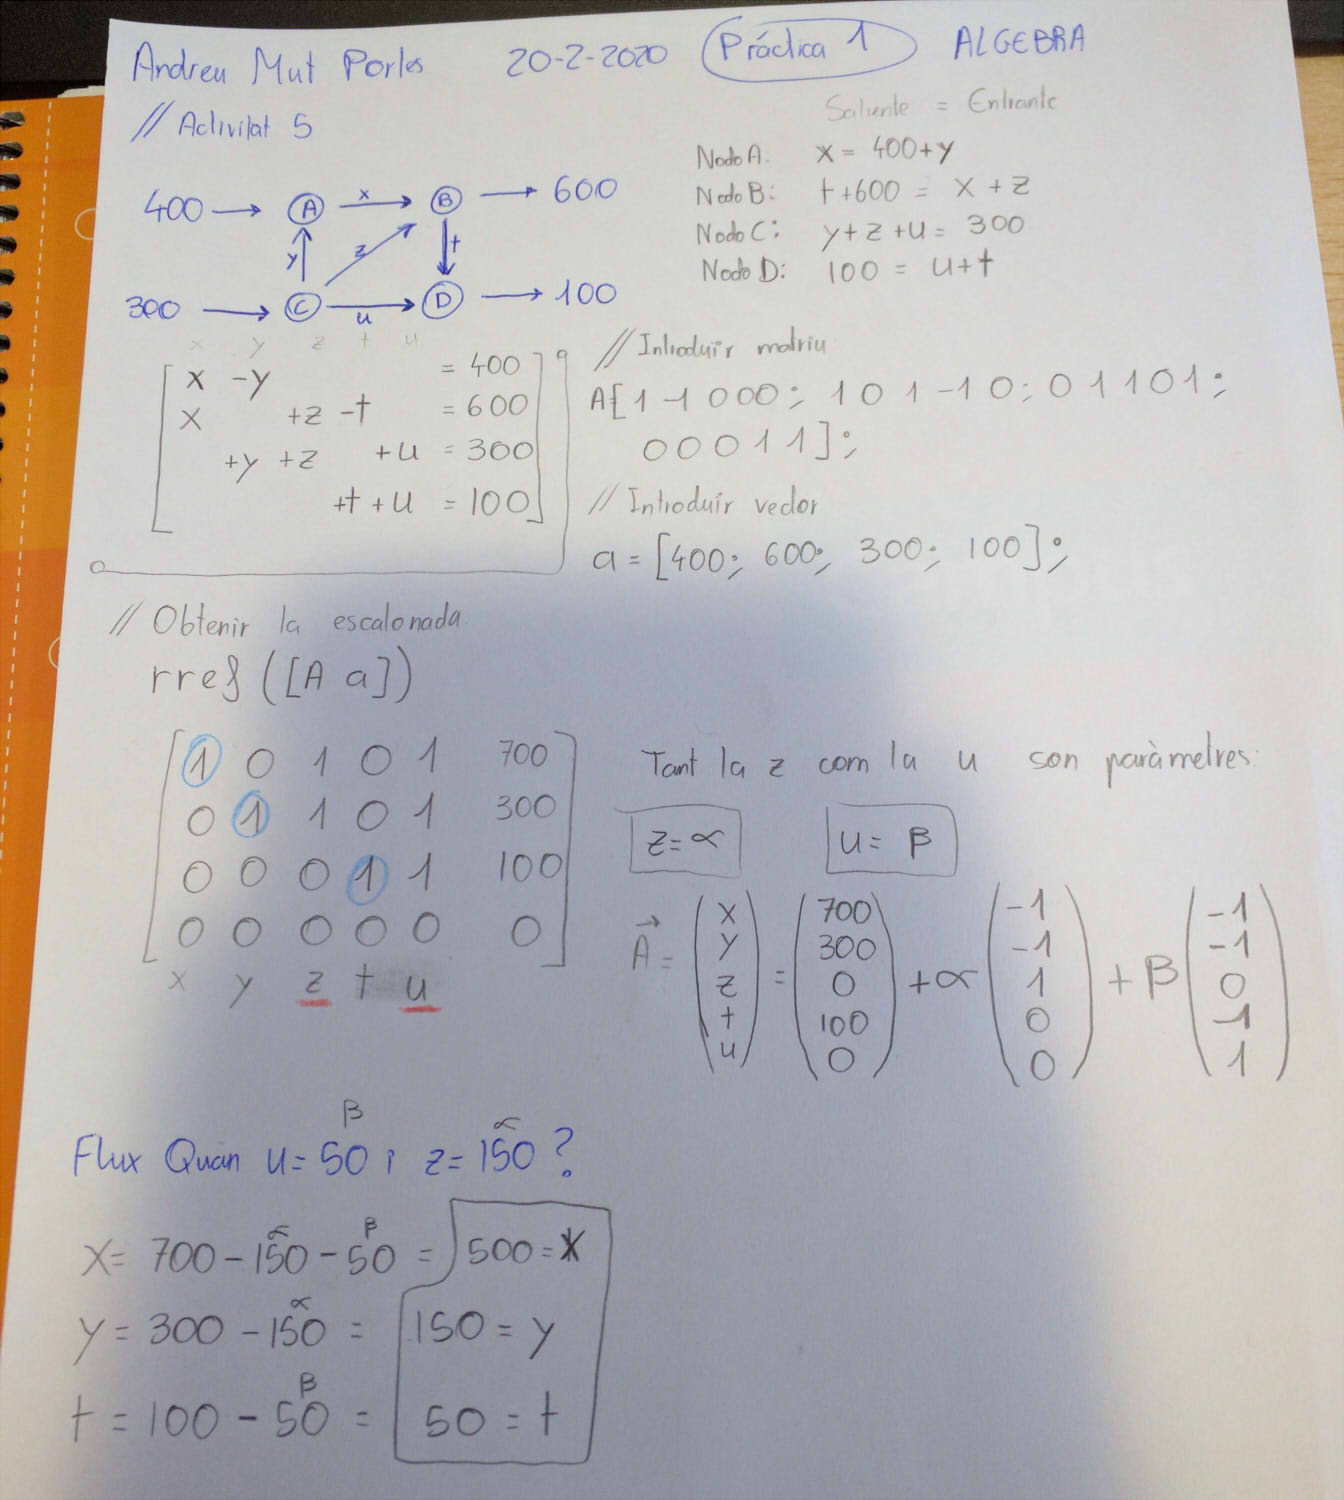 Andreu Mut Porles 20-2-2020 Práctica 1 ALGEBRA
// Activitat 5
Saliente = Entrante
Nodo A: x = 400+y
Nodo B: t+600 = x+z
Nodo C: y+z+u= 300
Nodo D: 100 = u+t
400 → A x → B → 600
y z t
300 → C u → D → 100
x y z t u
x -y = 400
x +z -t = 600
+y +z +u = 300
+t +u = 100
// Introduir matriu
A=[1 -1 0 0 0; 1 0 1 -1 0; 0 1 1 0 1;
0 0 0 1 1];
// Introduir vector
a = [400; 600; 300; 100];
// Obtenir la escalonada
rref ([A a])
1 0 1 0 1 700
0 1 1 0 1 300
0 0 0 1 1 100
0 0 0 0 0 0
x y z t u
Tant la z com la u son paràmetres:
z=α u= β
A = (x y z t u) = (700 300 0 100 0) +α (-1 -1 1 0 0) + β (-1 -1 0 -1 1)
β α
Flux Quan u= 50 i z= 150 ?
α β
x= 700-150-50 = 500=x
α
y= 300-150 = 150=y
β
t = 100 - 50 = 50 = t